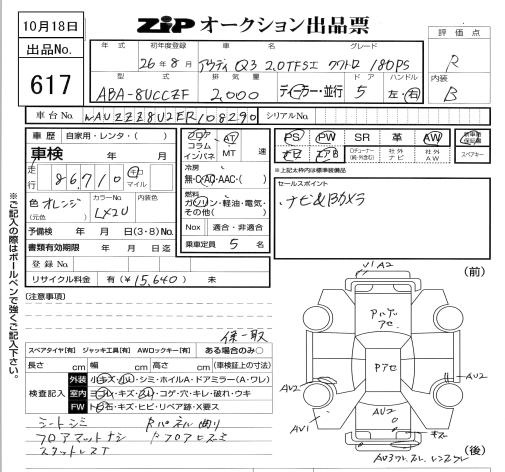 10月18日
出品No.
617
ZIP オークション出品票
評価点
R
内装
B
年式 初年度登録 車名 グレード
26年8月 アウディ Q3 2.0TFSI クワトロ 180PS
型式 排気量 ドア ハンドル
ABA-8UCCZF 2,000 ディーラー・並行 5 左・右
車台No. WAUZZZ8U2ER108290 シリアルNo.
車歴 自家用・レンタ・( )
車検 年 月
走行 86,710 キロ マイル
色 オレンジ (元色) カラーNo. LX2U 内装色
予備検 年 月 日(3・8) No.
書類有効期限 年 月 日迄
登録No.
リサイクル料金 有(¥15,640) 未
フロア コラム インパネ AT MT 速
冷房 無・C・AC・AAC・( )
燃料 ガソリン・軽油・電気・その他( )
Nox 適合・非適合
乗車定員 5 名
PS PW SR 革 AW
ナビ エアB
社外ナビ 社外AW スペアキー
※上記太枠内は標準装備品
セールスポイント
・ナビ&Bカメラ
※ご記入の際はボールペンで強くご記入下さい。
(注意事項)
スペアタイヤ[有] ジャッキ工具[有] AWロックキー[有] ある場合のみ○
長さ cm 幅 cm 高さ cm (車検証上の寸法)
検査記入
外装 小キズ・凹・シミ・ホイルA・ドアミラー(A・ワレ)
室内 ヨゴレ・キズ・スレ・コゲ・穴・キレ・破れ・ウキ
FW トビ石・キズ・ヒビ・リペア跡・X要ス
シートシミ Rパネル曲り
フロアマットナシ
(前)
V1 A2
Pアセ
AU2
AU2
AU1
AU2
キズ
(後)